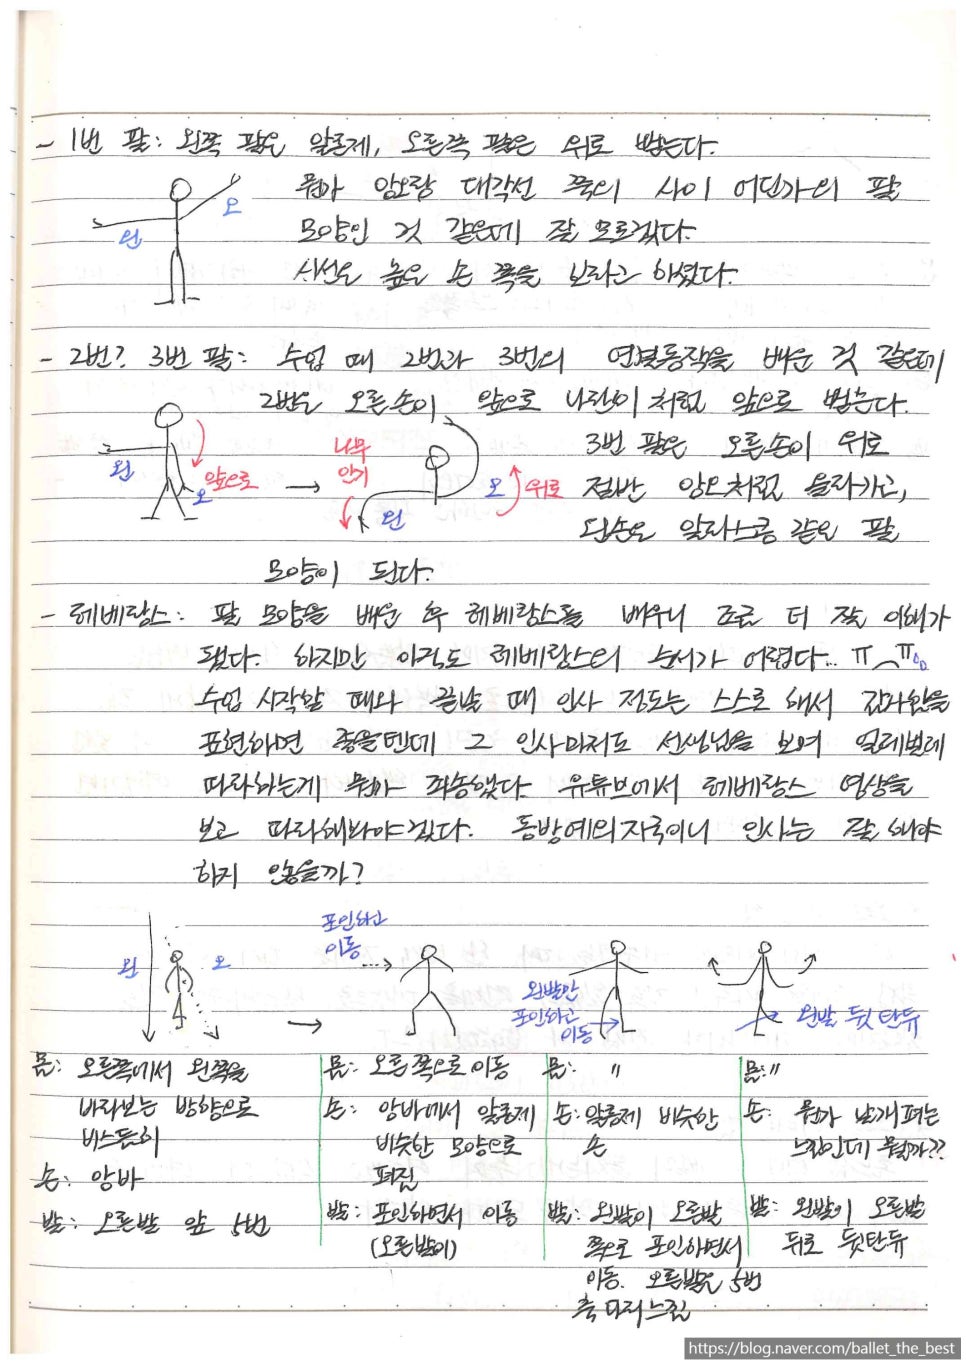 - 1번 팔: 왼쪽 팔은 알롱제, 오른쪽 팔은 위로 뻗는다.
뭔가 앙오랑 대각선 쪽의 사이 어딘가의 팔
오
왼
모양인 것 같은데 잘 모르겠다.
시선은 높은 손 쪽을 보라고 하셨다.
- 2번? 3번 팔: 수업 때 2번과 3번의 연결동작을 배운 것 같은데
2번은 오른손이 앞으로 나란히처럼 앞으로 뻗는다.
3번 팔은 오른손이 위로
왼
앞으로
오
나무
안기
왼
오
위로
절반 앙오처럼 올라가고,
왼손은 알라스콩 같은 팔
모양이 된다.
- 레베랑스: 팔 모양을 배운 후 레베랑스를 배우니 조금 더 잘 이해가
됐다. 하지만 아직도 레베랑스의 순서가 어렵다... ㅠ_ㅠ
수업 시작할 때와 끝날 때 인사 정도는 스스로 해서 감사함을
표현하면 좋을텐데 그 인사마저도 선생님을 보며 일레벌레
따라하는게 뭔가 죄송했다. 유튜브에서 레베랑스 영상을
보고 따라해봐야겠다. 동방예의지국이니 인사는 잘 해야
하지 않을까?
왼
오
포인하고
이동
왼발만
포인하고
이동
왼발 뒷 탄듀
몸: 오른쪽에서 왼쪽을
바라보는 방향으로
비스듬히
손: 앙바
발: 오른발 앞 5번
몸: 오른쪽으로 이동
손: 앙바에서 알롱제
비슷한 모양으로
펴짐
발: 포인하면서 이동
(오른발이)
몸: "
손: 알롱제 비슷한
손
발: 왼발이 오른발
쪽으로 포인하면서
이동. 오른발은 5번
축 다리 느낌
몸: "
손: 뭔가 날개 펴는
느낌인데 뭘까??
발: 왼발이 오른발
뒤로 뒷탄듀
https://blog.naver.com/ballet_the_best